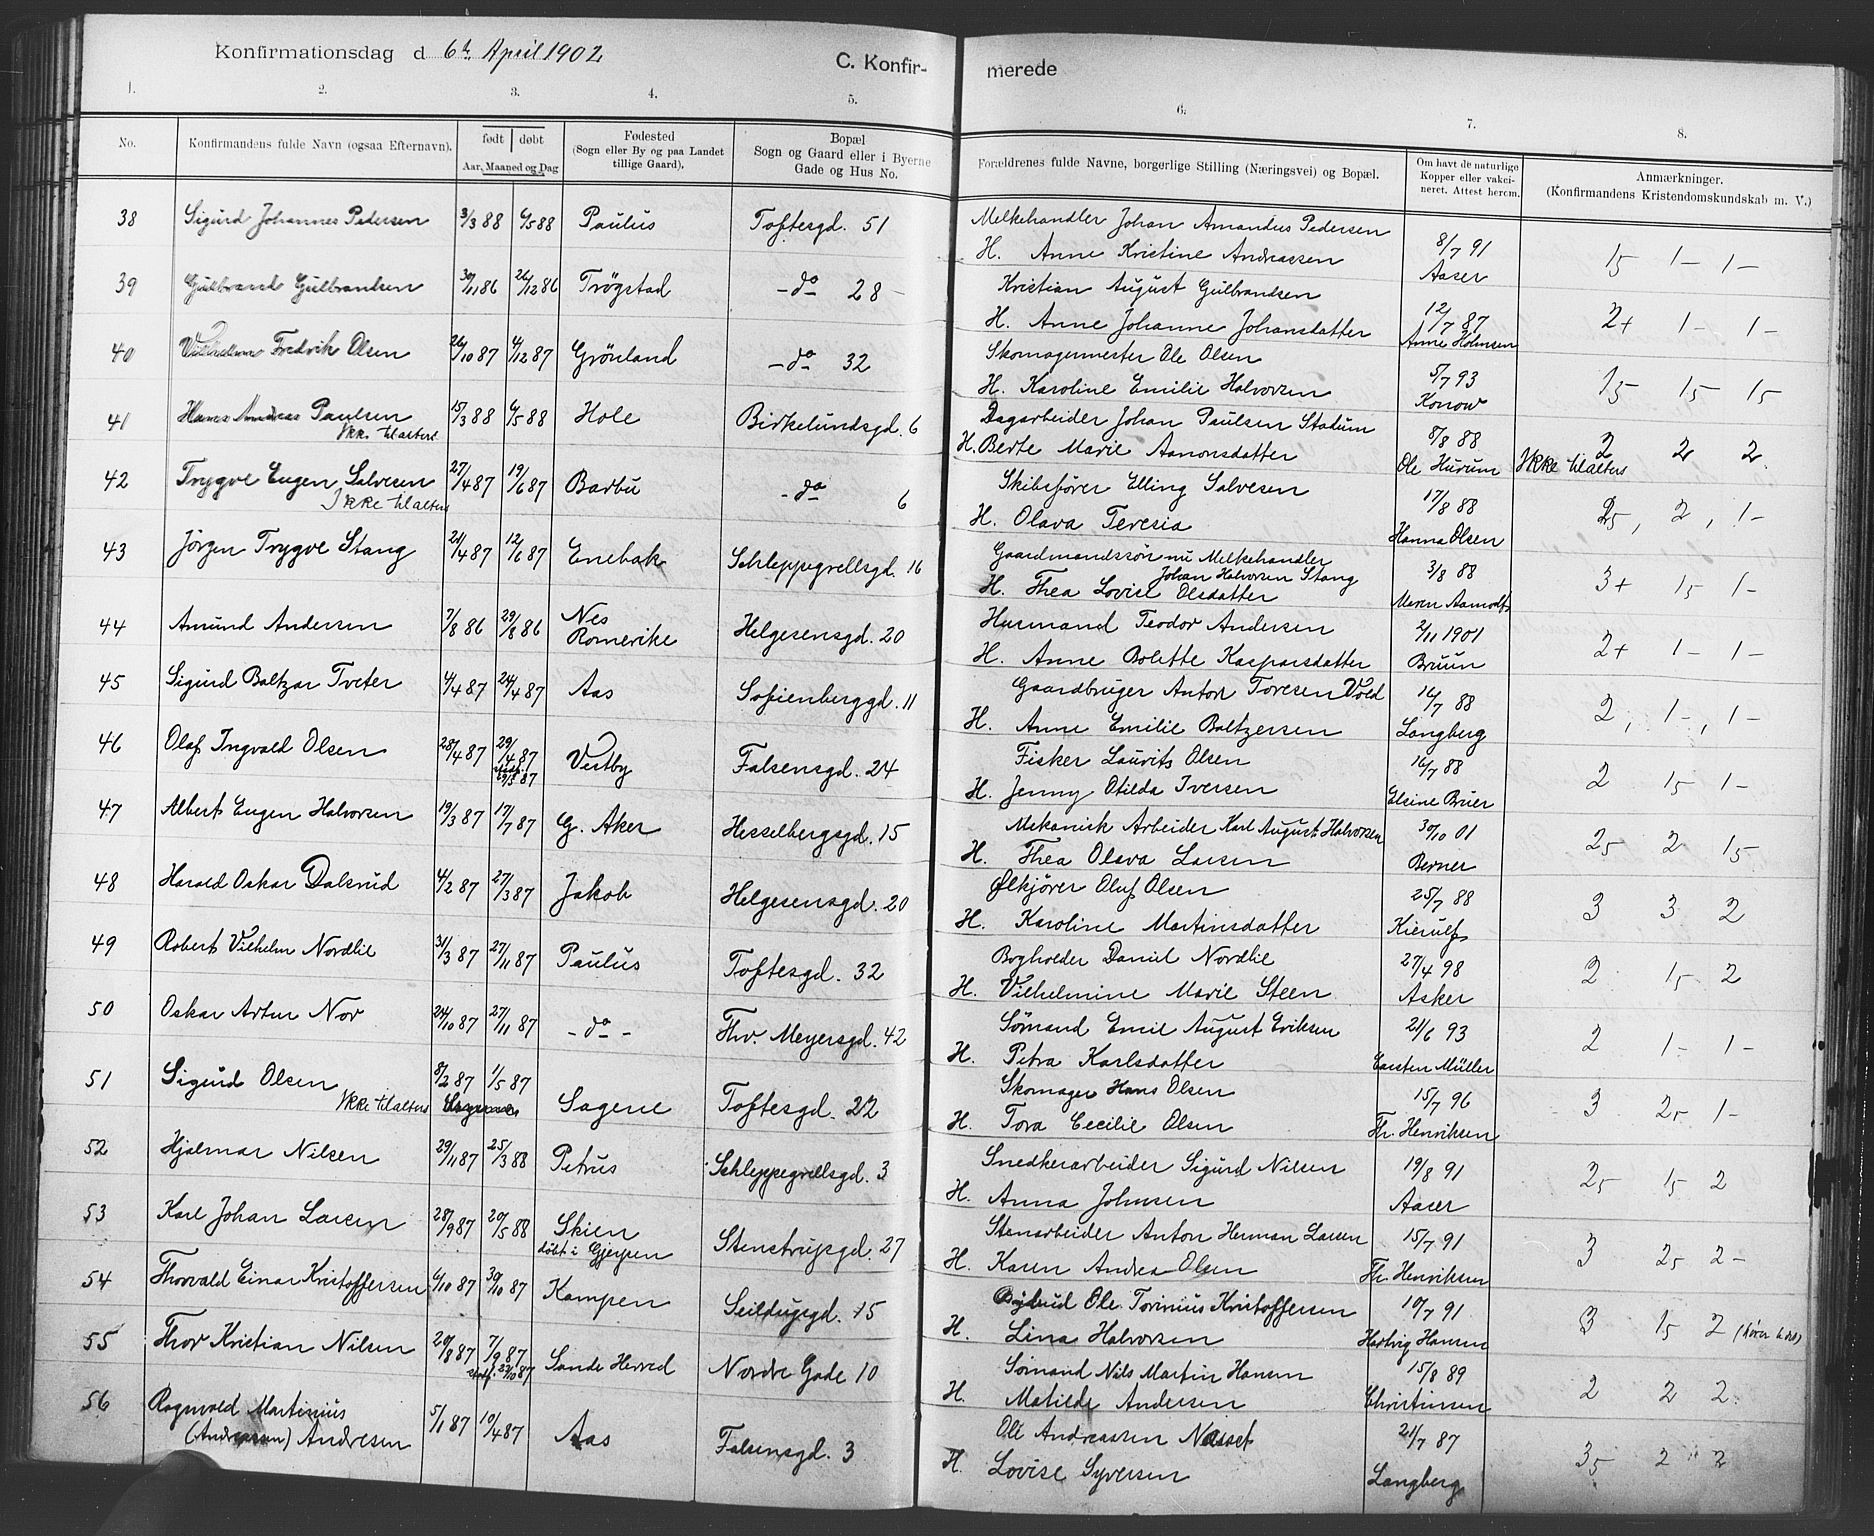 Konfirmationsdag d 6te April 1902 C. Konfir- merede
1. 2. 3. 4. 5. 6. 7. 8.
No. Konfirmandens fulde Navn (ogsaa Efternavn). født døbt Aar, Maaned og Dag Fødested (Sogn eller By og paa Landet tillige Gaard). Bopæl Sogn og Gaard eller i Byerne Gade og Hus No. Forældrenes fulde Navne, borgerlige Stilling (Næringsvei) og Bopæl. Om havt de naturlige Kopper eller vakcineret. Attest herom. Anmærkninger. (Konfirmandens Kristendomskundskab m. V.)
38 Sigurd Johannes Pedersen 3/3 88 6/5 88 Paulus Toftesgd. 51 Melkehandler Johan Amandus Pedersen 8/7 91
H. Anne Kristine Andreassen Aaser 15 1- 1-
39 Gulbrand Gulbrandsen 30/11 86 26/12 86 Trøgstad -do- 28 Kristian August Gulbrandsen 12/7 87
H. Anne Johanne Johansdatter Anne Holmsen 2+ 1- 1-
40 Vilhelm Fredrik Olsen 26/10 87 4/12 87 Grönland -do- 32 Skomagermester Ole Olsen 5/7 93
H. Karoline Emilie Halvorsen Konow 15 15 15
41 Hans Andreas Paulsen 15/3 88 6/5 88 Hole Birkelundsgd. 6 Dagarbeider Johan Paulsen Stadum 8/8 88 2 2 2
Ikke tilalters H. Berte Marie Aamonsdatter Ole Hurum Ikke tilalters
42 Trygve Eugen Salvesen 27/4 87 19/6 87 Barbu -do- 6 Skibsfører Elling Salvesen 17/8 88
Ikke tilalters H. Olava Teresia Hanna Olsen 25, 2, 1-
43 Jörgen Trygve Stang 21/4 87 12/6 87 Enebak Schleppegrellsgd. 16 Gaardmandssön nu Melkehandler Johan Halvorsen Stang 3/8 88
H. Thea Lovise Olsdatter Maren 3+ 15 1-
44 Amund Andersen 7/8 86 29/8 86 Nes Romerike Helgesensgd. 20 Husmand Teodor Andersen 2/11 1901
H. Anne Bolette Kasparsdatter Bruun 2+ 1- 1-
45 Sigurd Baltzar Tveter 4/4 87 24/4 87 Aas Sofienberggd. 11 Gaardbruger Anton Toresen Vold 16/7 88
H. Anne Emilie Baltzersen Langberg 2, 1-, 1-
46 Olaf Ingvald Olsen 28/4 87 29/4 87 Vestby Falsensgd. 24 Fisker Laurits Olsen 16/7 88
H. Jenny Otilda Iversen Elsine Bruer 2 15 1-
47 Albert Eugen Halvorsen 19/3 87 17/7 87 G. Aker Hesselbergsgd. 15 Mekanisk Arbeider Karl August Halvorsen 30/10 01
H. Thea Olava Larsen Berner 25 2 15
48 Harald Oskar Dalsrud 4/2 87 27/3 87 Jakob Helgesensgd. 20 Ølkjörer Oluf Olsen 25/7 88
H. Karoline Martinsdatter Kierulf 3 3 2
49 Robert Vilhelm Nordlie 31/3 87 27/11 87 Paulus Toftesgd. 32 Bogholder Daniel Nordlie 27/4 98
H. Vilhelmine Marie Steen Asker 2 15 2
50 Oskar Artur Nor 24/10 87 27/11 87 -do- Thv. Meyersgd. 42 Sømand Emil August Eriksen 21/6 93
H. Petra Karlsdatter Carsten Müller 2 1- 1-
51 Sigurd Olsen 8/2 87 1/5 87 Sagene Toftesgd. 22 Skomager Hans Olsen 15/7 96
Ikke tilalters H. Tora Cecilie Olsen Th. Henriksen 3 25 1-
52 Hjalmar Nilsen 29/11 87 25/3 88 Petrus Schleppegrellsgd. 3 Snedkerarbeider Sigurd Nilsen 19/8 91
H. Anna Johnsen Aaser 25 15 2
53 Karl Johan Larsen 28/9 87 20/5 88 Skien døbt i Gjerpen Stenstrupsgd. 27 Stenarbeider Anton Herman Larsen 15/7 91
H. Karen Andrea Olsen Th. Henriksen 3 25 2-
54 Thorvald Einar Kristoffersen 6/10 87 30/10 87 Kampen Seildugsgd. 15 Ole Torinius Kristoffersen 10/7 91
H. Lina Halvorsen Hartvig Hansen 3 15 2
55 Thor Kristian Nilsen 20/8 87 7/9 87 Sande Herred Nordre Gade 10 Sømand Nils Martin Hansen 15/8 89
H. Matilde Andersen Christiansen 2 2 2
56 Ragnvald Martinius 5/1 87 10/4 87 Aas Falsensgd. 3 Ole Andreassen Nesset 21/7 87
(Andreasen) Andresen H. Lovise Syversen Langberg 35 2 2